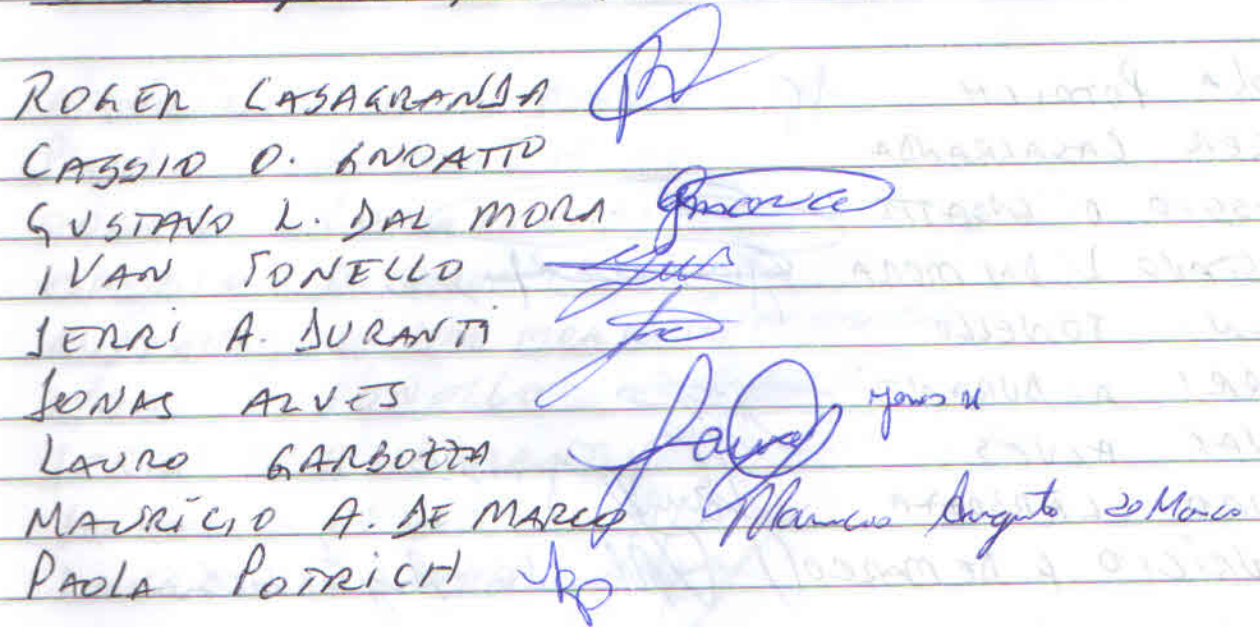 ROGER CASAGRANDA
CASSIO O. GNOATTO
GUSTAVO L. DAL MORA
IVAN TONELLO
JERRI A. DURANTI
JONAS ALVES
LAURO GARBOZZA
MAURÍCIO A. DE MARCO Mauricio Augusto de Marco
PAOLA POTRICH